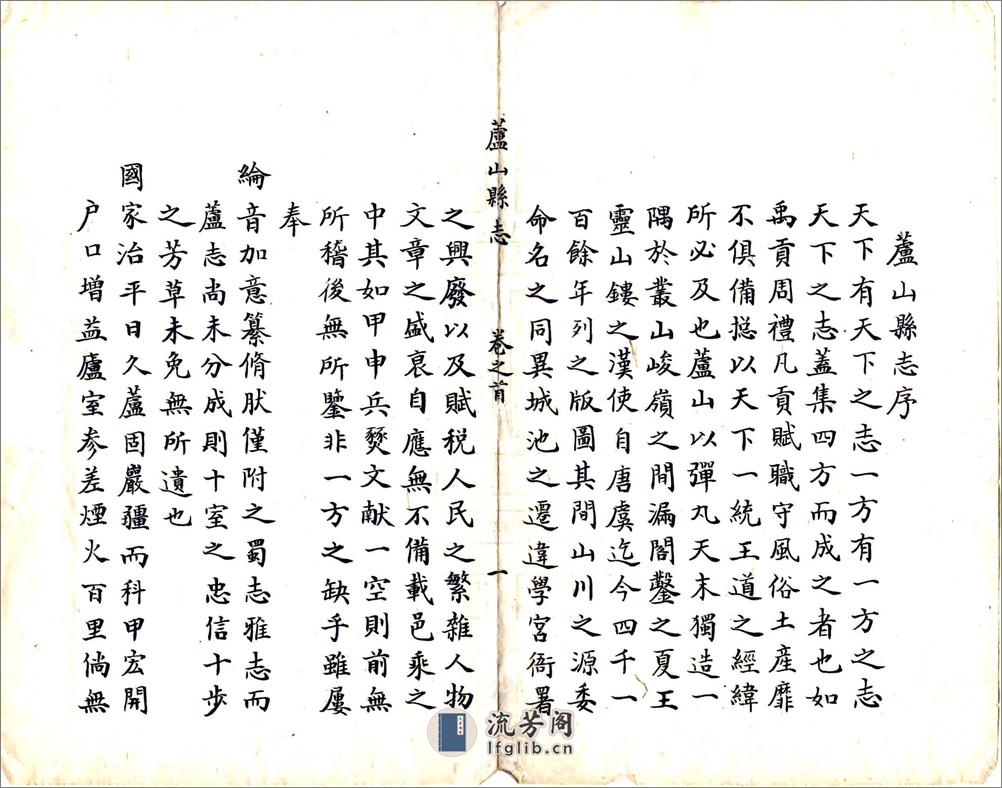 蘆山縣志序
天下有天下之志一方有一方之志
天下之志蓋集四方而成之者也如
禹貢周禮凡貢賦職守風俗土產靡
不俱備揔以天下一統王道之經緯
所必及也蘆山以彈丸天末獨造一
隅於叢山峻嶺之間漏閣鑿之夏王
靈山鏤之漢使自唐虞迄今四千一
百餘年列之版圖其間山川之源委
命名之同異城池之遷違學宮衙署
蘆山縣志 卷之首 一
之興廢以及賦稅人民之繁雜人物
文章之盛衰自應無不備載邑乘之
中其如甲申兵燹文献一空則前無
所稽後無所鑒非一方之缺乎雖屢
奉
綸音加意纂脩肰僅附之蜀志雅志而
蘆志尚未分成則十室之忠信十步
之芳草未免無所遺也
國家治平日久蘆固巖疆而科甲宏開
户口增益廬室参差煙火百里倘無
流芳阁
lfglib.cn